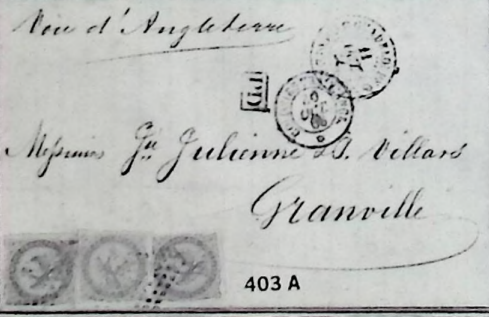 Voie d'Angleterre
PD
Messieurs Gu Julienne & S. Villars
Granville
403 A